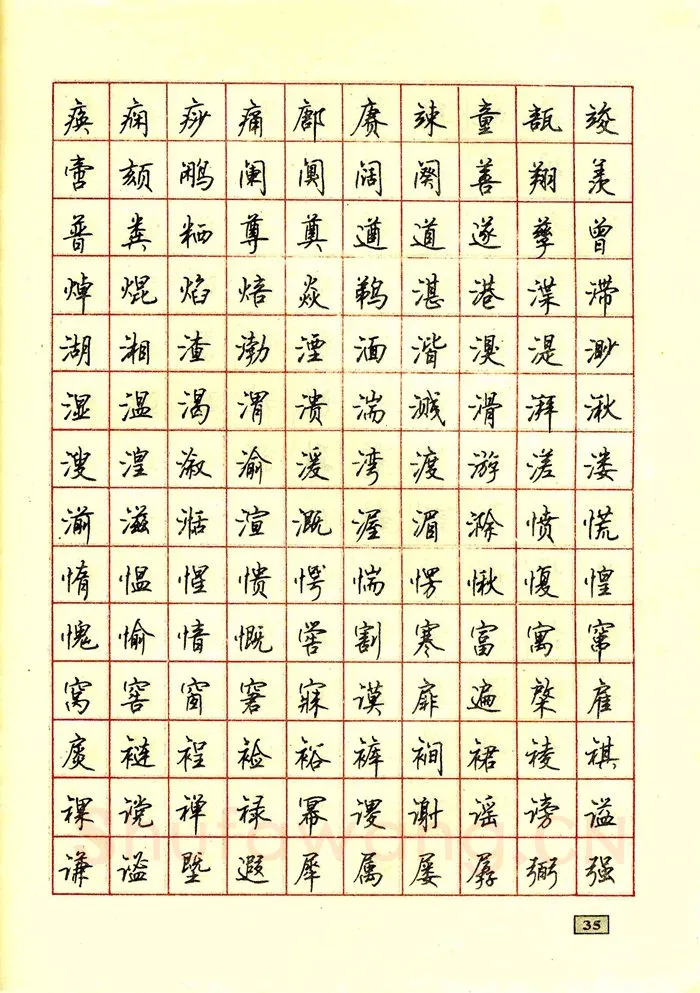 痪痫痧痛鄌赓竦童瓿竣
啻颏鹇阑阒阔阕善翔羡
普粪粞尊奠遒道遂孳曾
焯焜焰焙焱鹈湛港渫滞
湖湘渣渤湮湎湝湨湜渺
湿温渴渭溃湍溅滑湃湫
溲湟溆渝湲湾渡游溠溇
湔滋湉渲溉渥湄滁愤慌
惰愠惺愦愕惴愣愀愎惶
愧愉愔慨喾割寒富寓窜
窝窖窗窘寐谟扉遍棨雇
扊裢裎裣裕裤裥裙祾祺
祼谠禅禄幂谡谢谣谤谥
谦谧塈遐犀属屡孱弼强
35